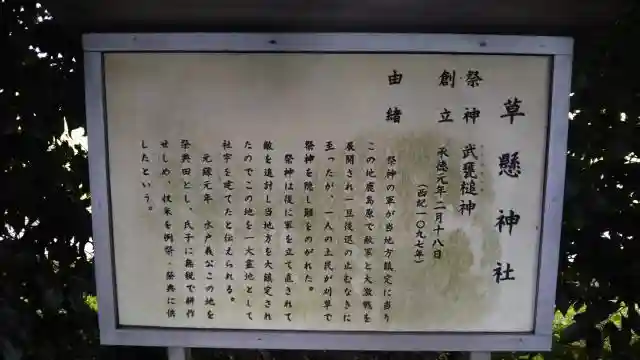 草懸神社
祭神 武甕槌神
創立 承徳元年二月十八日
（西紀一〇九七年）
由緒
祭神の軍が当地方鎮定に当り
この地鹿島原で敵軍と大激戦を
展開され一旦後退の止むなきに
至ったが、一人の土民が刈草で
祭神を隠し難をのがれた。
祭神は後に軍を立て直されて
敵を追討し当地方を大鎮定され
たのでこの地を一大霊地として
社宇を建てたと伝えられる。
元禄元年 水戸義公この地を
祭典田とし、氏子に無税で耕作
せしめ、收米を例祭・祭典に供
したという。